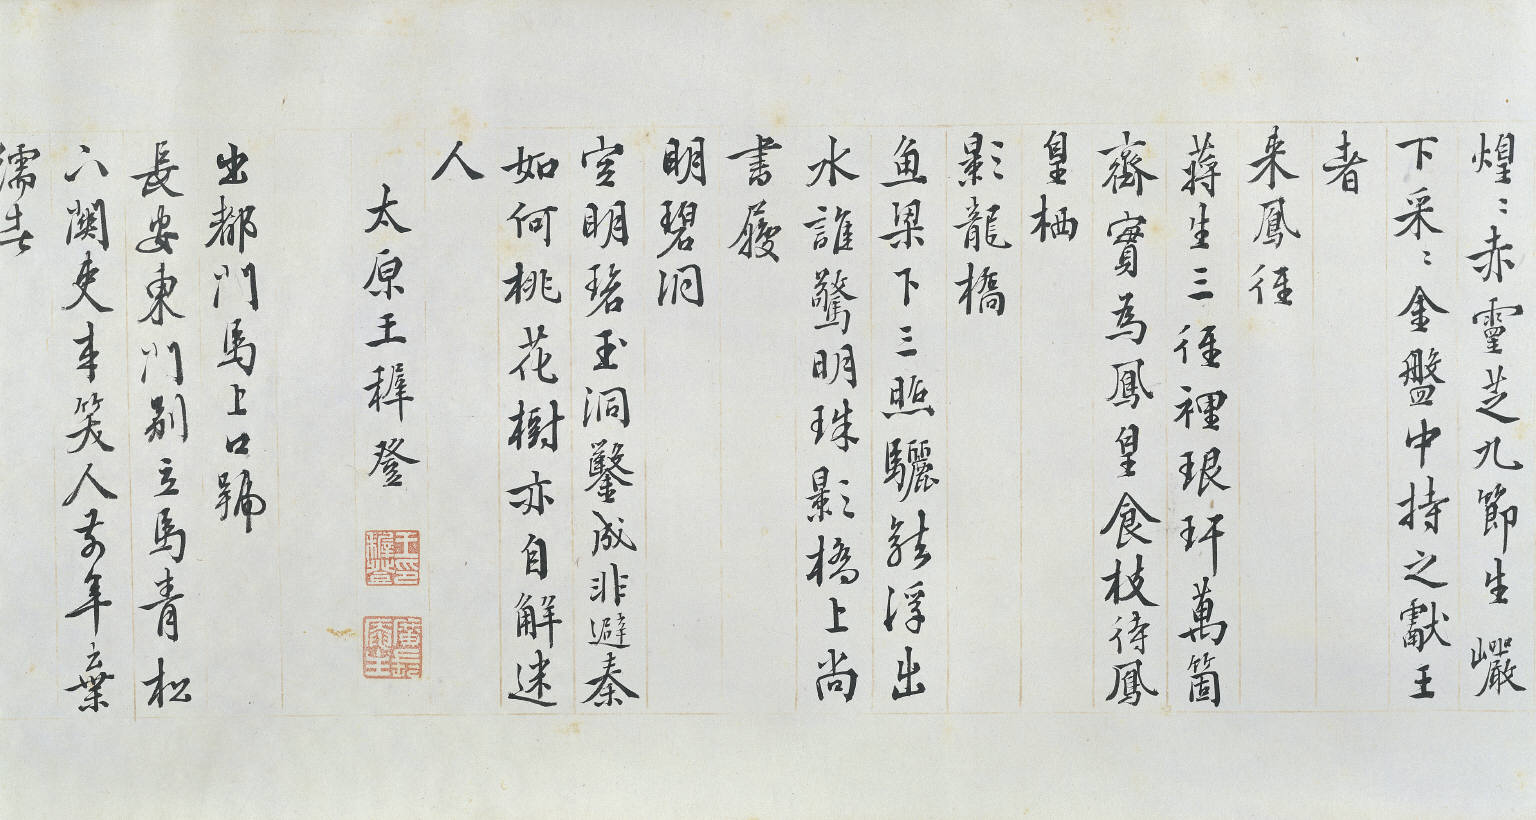 煌〻赤靈芝九節生巖
下采〻金盤中持之獻王
者
来鳳徑
蔣生三徑裡琅玕萬箇
齋實為鳳皇食枝待鳳
皇栖
影龍橋
魚梁下三照驪龍浮出
水誰驚明珠影橋上尚
書履
明碧洞
空明碧玉洞鑿成非避秦
如何桃花樹亦自解迷
人
太原王穉登
王穉登印
出都門馬上口號
長安東門別立馬青松
下關吏來笑人前年棄
濡去